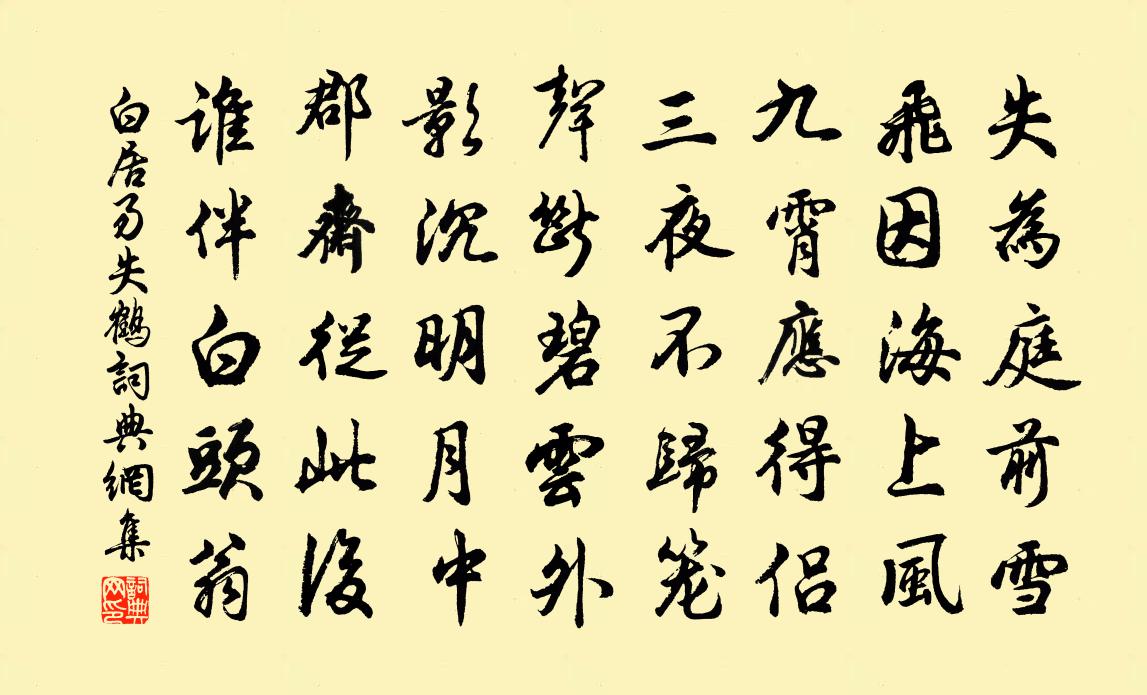 失為庭前雪
飛因海上風
九霄應得侶
三夜不歸笼
聲斷碧雲外
影沉明月中
郡齋從此後
誰伴白頭翁
白居易失鶴詞典網集
詞典网印